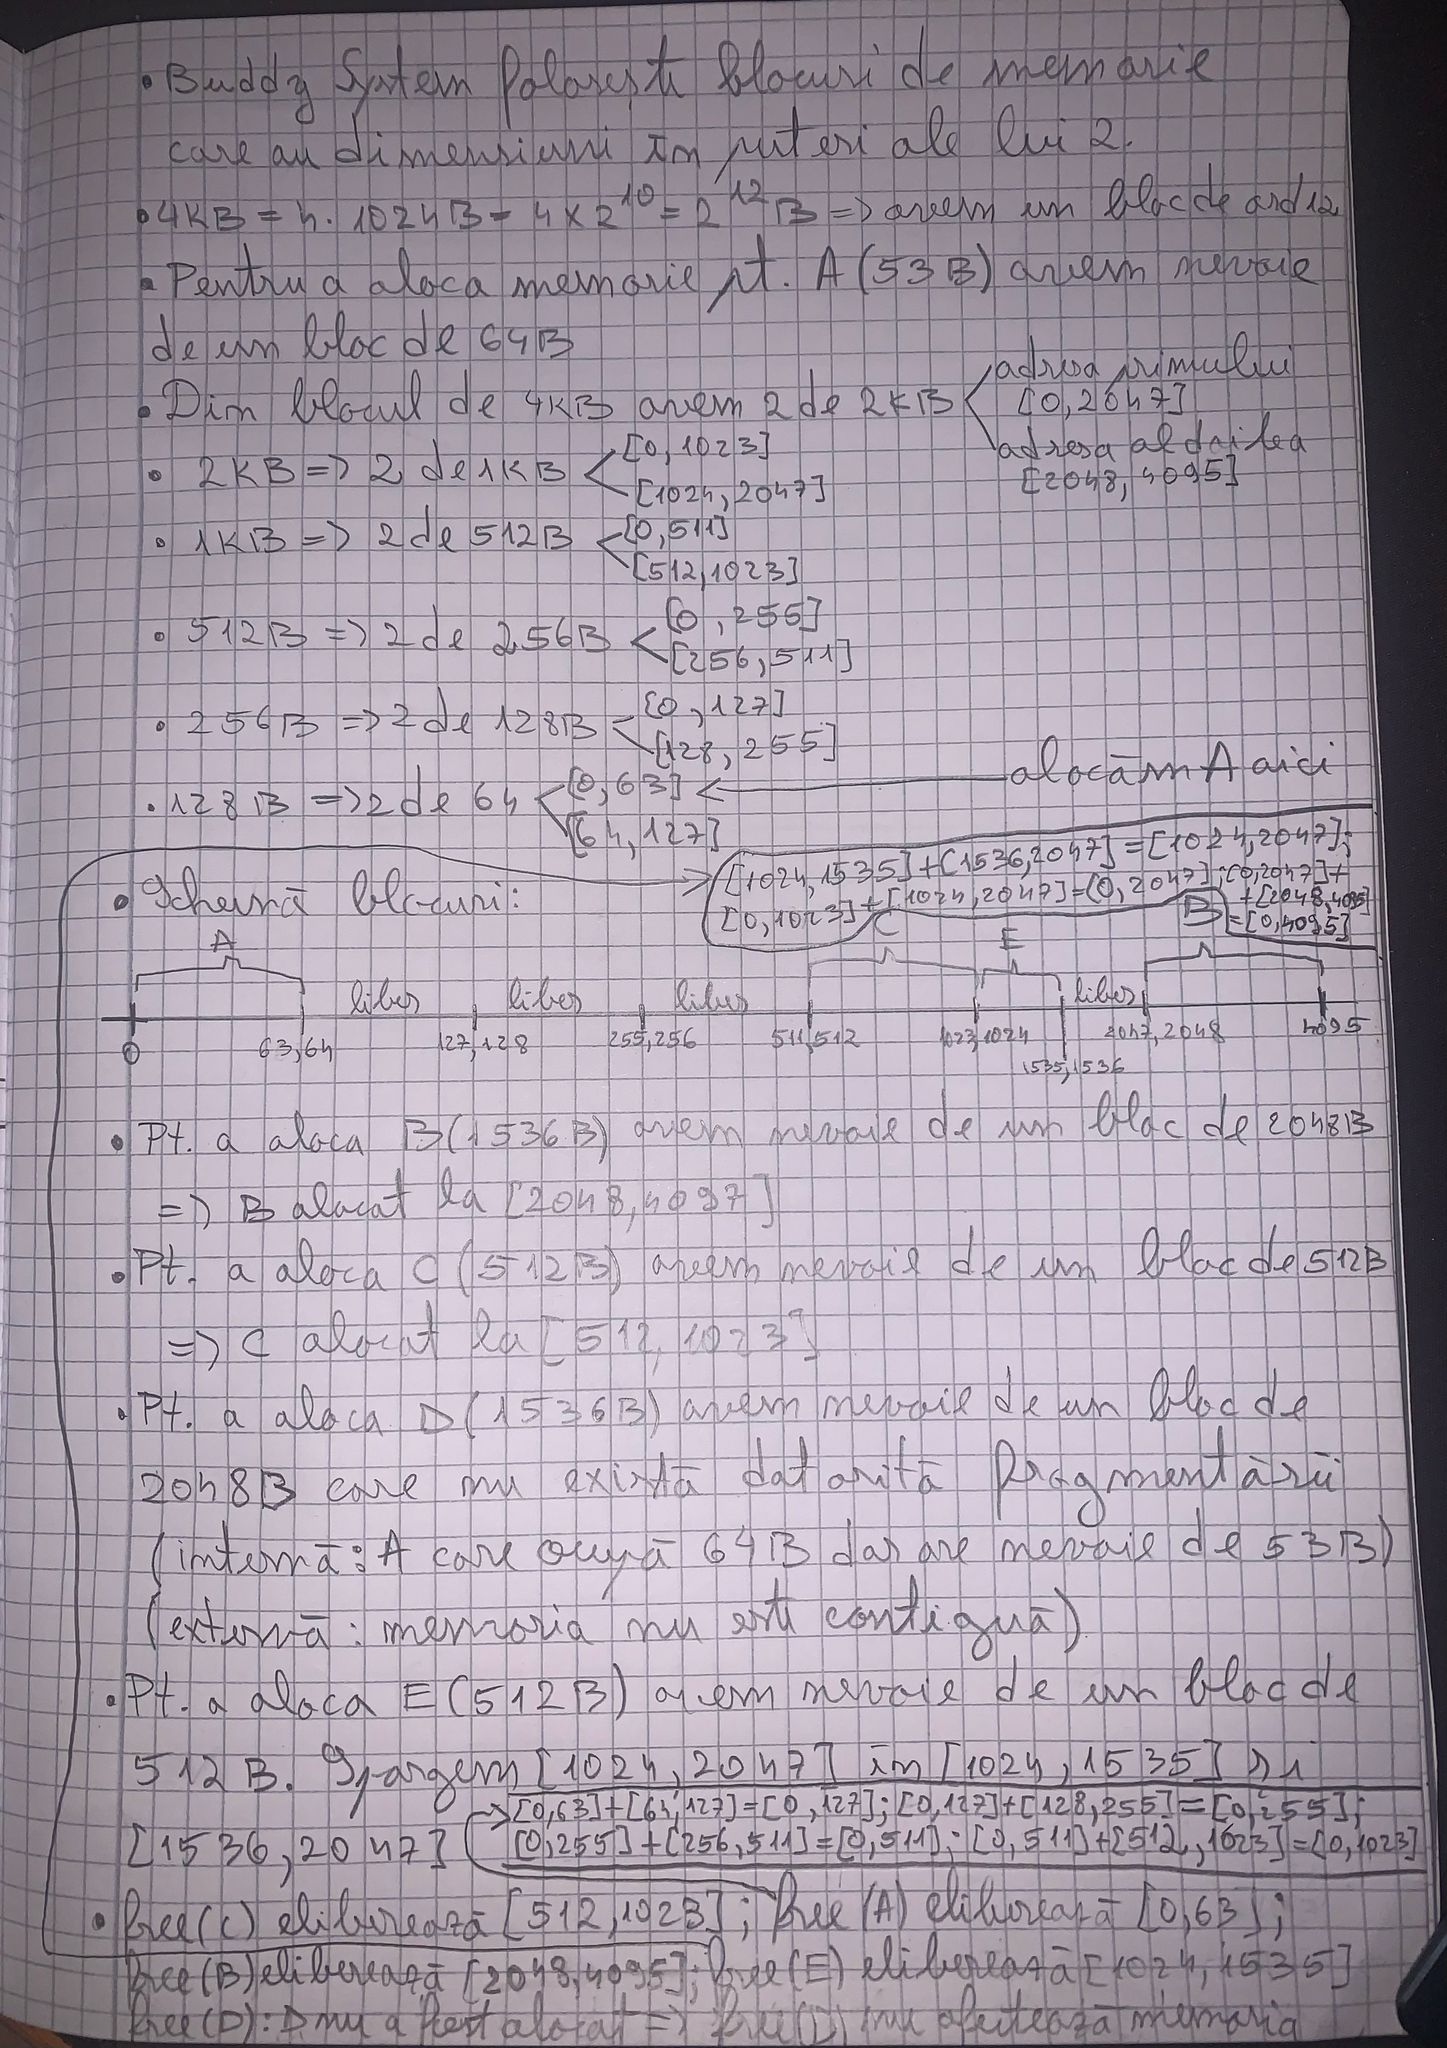 • Buddy System folosește blocuri de memorie
care au dimensiuni în puteri ale lui 2.
• 4KB = 4 · 1024B = 4 x 2^10 = 2^12 B => avem un bloc de ord 12
• Pentru a aloca memorie pt. A (53B) avem nevoie
de un bloc de 64B
• Din blocul de 4KB avem 2 de 2KB < adresa primului
[0,2047]
adresa al doilea
[2048,4095]
• 2KB => 2 de 1KB < [0,1023]
[1024,2047]
• 1KB => 2 de 512B < [0,511]
[512,1023]
• 512B => 2 de 256B < [0,255]
[256,511]
• 256B => 2 de 128B < [0,127]
[128,255]
• 128B => 2 de 64 < [0,63] ← alocăm A aici
[64,127]
[1024,1535]+[1536,2047]=[1024,2047];
[0,1023]+[1024,2047]=[0,2047];[0,2047]+
+[2048,4095]
=[0,4095]
• Schemă blocuri:
A C E B
liber liber liber liber
0 63,64 127,128 255,256 511,512 1023,1024 2047,2048 4095
1535,1536
• Pt. a aloca B(1536B) avem nevoie de un bloc de 2048B
=> B alocat la [2048,4097]
• Pt. a aloca C (512B) avem nevoie de un bloc de 512B
=> C alocat la [512,1023]
• Pt. a aloca D(1536B) avem nevoie de un bloc de
2048B care nu există datorită fragmentării
(internă: A care ocupă 64B dar are nevoie de 53B)
(externă: memoria nu este contiguă)
• Pt. a aloca E(512B) avem nevoie de un bloc de
512B. Spargem [1024,2047] în [1024,1535] și
→[0,63]+[64,127]=[0,127];[0,127]+[128,255]=[0,255];
[1536,2047] [0,255]+[256,511]=[0,511]; [0,511]+[512,1023]=[0,1023]
• free(C) eliberează [512,1023]; free(A) eliberează [0,63];
free(B) eliberează [2048,4095]; free(E) eliberează [1024,1535]
free(D): D nu a fost alocat => free(D) nu afectează memoria